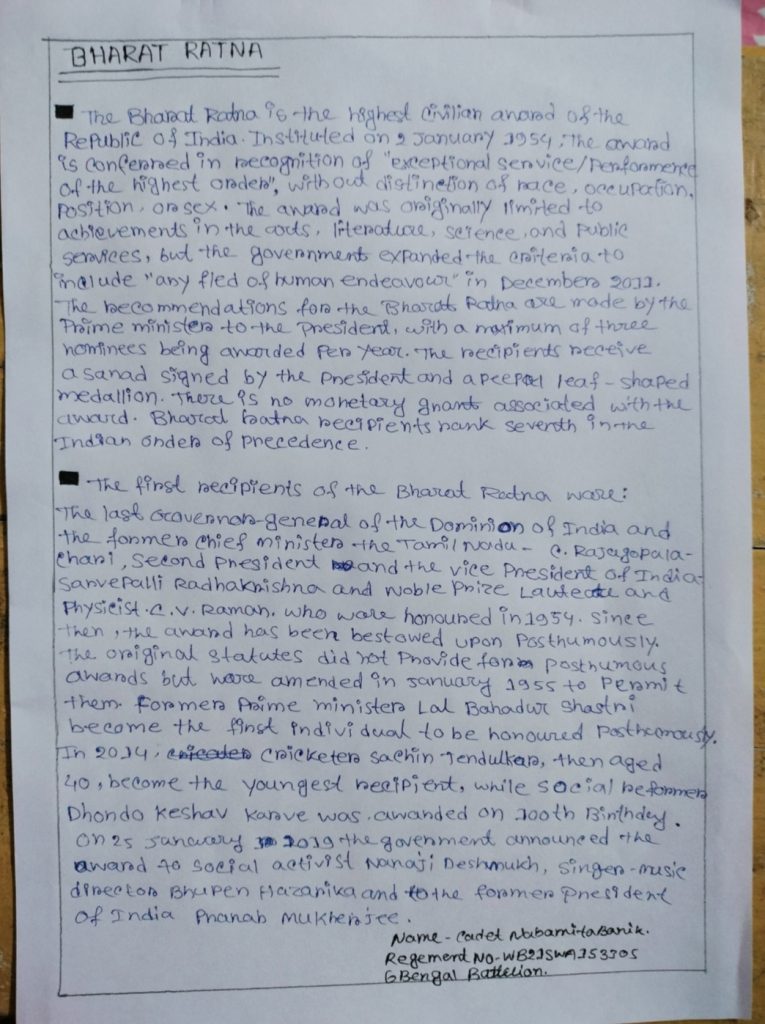 BHARAT RATNA
The Bharat Ratna is the highest civilian award of the
Republic of India. Instituted on 2 January 1954, the award
is conferred in recognition of "exceptional service/performence
of the highest order", without distinction of race, occupation,
position, or sex. The award was originally limited to
achievements in the arts, literature, science, and public
services, but the government expanded the criteria to
include "any fled of human endeavour" in December 2011.
The recommendations for the Bharat Ratna are made by the
Prime minister to the president, with a maximum of three
nominees being awarded per year. The recipients receive
a sanad signed by the president and a peepal leaf-shaped
medallion. There is no monetary grant associated with the
award. Bharat Ratna recipients rank seventh in the
Indian order of precedence.
The first recipients of the Bharat Ratna ware:
The last Governor-general of the Dominion of India and
the former chief minister the Tamil Nadu - C. Rajagopala-
chari, second president and the vice President of India-
Sarvepalli Radhakrishna and Noble Prize Laureate and
Physicist C.V. Raman. who ware honoured in 1954. Since
then, the award has been bestowed upon Posthumously.
The original statutes did not provide for posthumous
awards but were amended in January 1955 to permit
them. Former Prime minister Lal Bahadur Shastri
become the first individual to be honoured Posthumously.
In 2014, cricketer Sachin Tendulkar, then aged
40, become the youngest recipient, while social reformer
Dhondo Keshav Karve was awarded on 100th Birthday.
On 25 January 2019 the goverment announced the
award to social activist Nanaji Deshmukh, singer-music
director Bhupen Hazarika and to the former president
of India Pranab Mukherjee.
Name - Cadet Nabamita Banik.
Regement No-WB21SWA153305
6 Bengal Battelion.